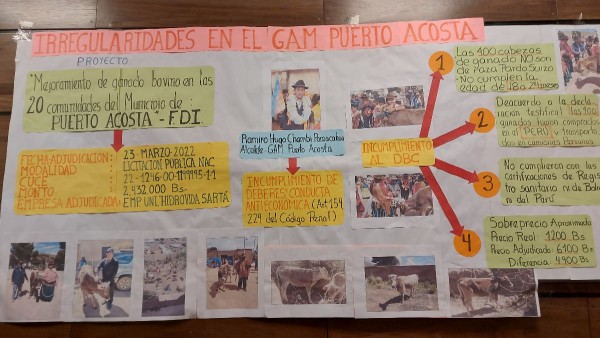 IRREGULARIDADES EN EL GAM PUERTO ACOSTA
PROYECTO
"Mejoramiento de ganado bovino en las
20 comunidades del Municipio de:
PUERTO ACOSTA"- FDI.
FECHA ADJUDICACION: 23 MARZO-2022
MODALIDAD : LICITACION PUBLICA NAC
CUCE : 22-1216-00-
MONTO : 2,432.000 Bs-
EMPRESA ADJUDICADA: EMP UNI. HIDROVIDA SARTÁ
Ramiro Hugo Chambi
Alcalde-GAM Puerto Acosta
INCUMPLIMIENTO DE
DEBERES CONDUCTA
ANTIECONÓMICA (Art 154
224 del Código Penal)
INCUMPLIMIENTO
AL DBC
1
Las 400 cabezas
de ganado NO son
de Raza Pardo Suizo
-No cumplen la
edad de 18 a
2
Deacuerdo a la decla-
ración testifical las 400
ganados fueron comprados
en el "PERÚ" y transporta-
dos en camiones
3
No cumplieron con las
certificaciones de Regis-
tro sanitario ni de Boliv
ni del Perú
4
Sobreprecio Aproximado
Precio Real 1200 Bs
Precio Adjudicado 6100 Bs
Diferencia 4900 Bs